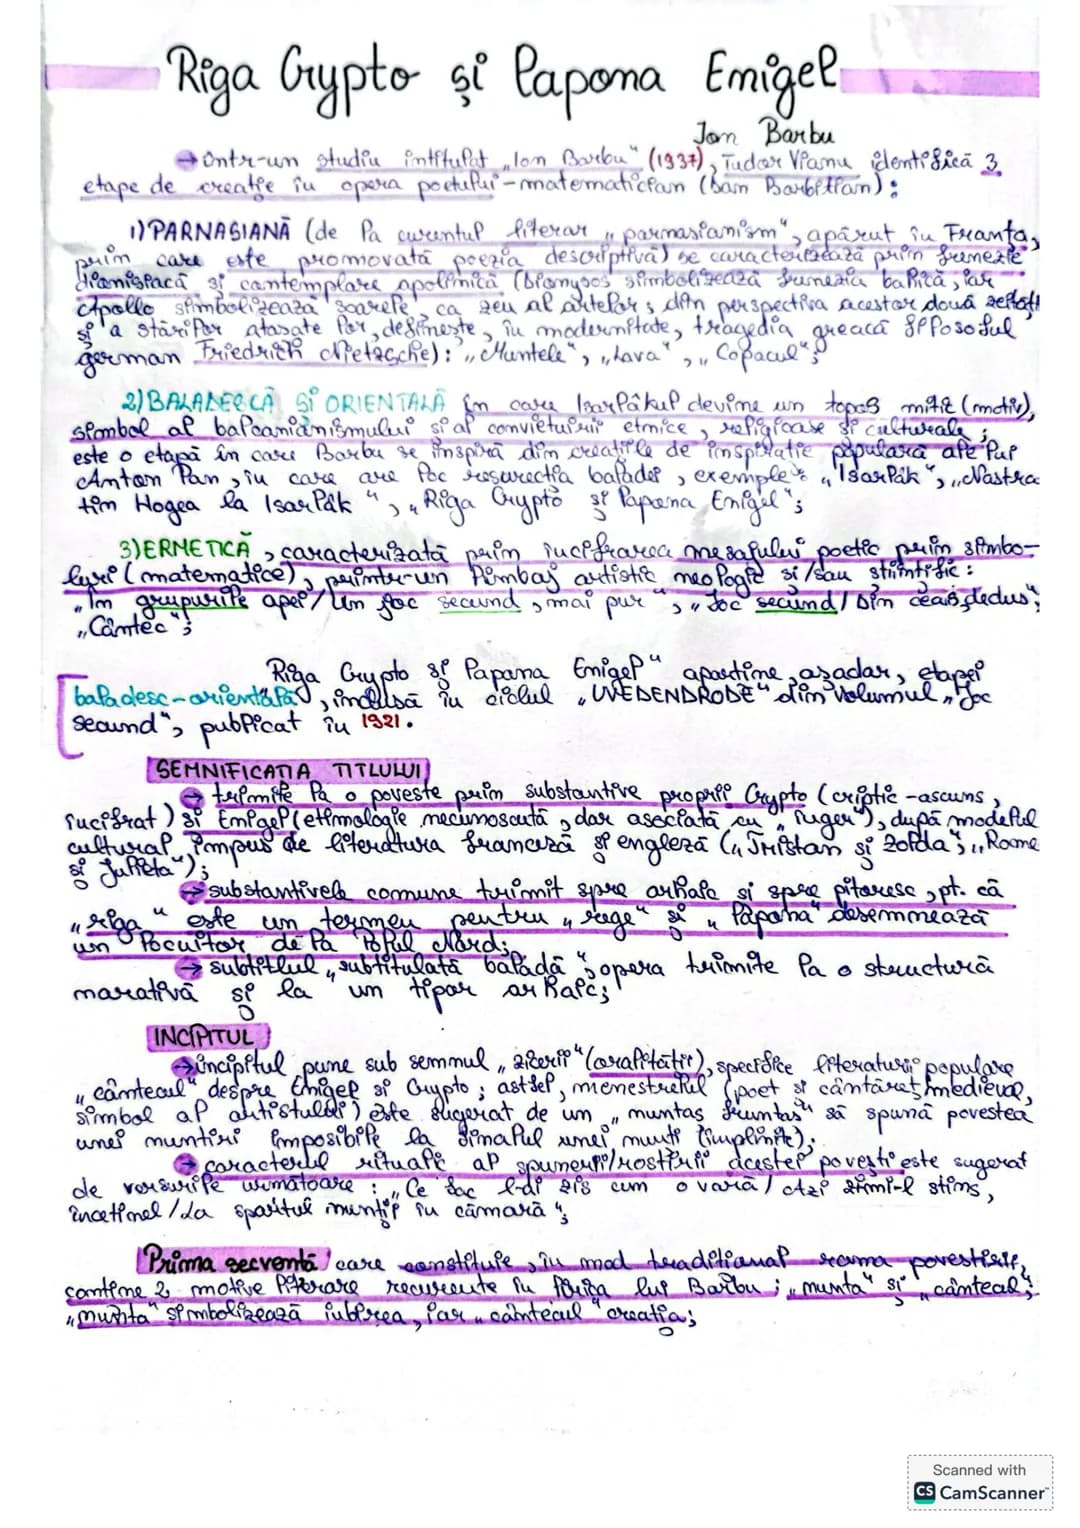 Riga Crypto și lapona Enigel
Ion Barbu
→ Într-un studiu intitulat „Ion Barbu" (1937), Tudor Vianu identifică 3
etape de creație în opera poetului-matematician (Dan Barbilian):
1) PARNASIANĂ (de la curentul literar „parnasianism", apărut în Franța,
prin care este promovată poezia descriptivă) se caracterizează prin frenezie
dionisiacă și contemplare apolinică (Dionysos simbolizează frenezia bahică, iar
Apollo simbolizează soarele, ca zeu al artelor; din perspectiva acestor două zeități
și a stărilor atașate lor, definește, în modernitate, tragedia greacă filosoful
german Friedrich Nietzsche): „Muntele", „Lava", „Copacul";
2) BALADESCĂ ȘI ORIENTALĂ în care Isarlâkul devine un topos mitic (motiv),
simbol al balcanianismului și al conviețuirii etnice, religioase și culturale;
este o etapă în care Barbu se inspiră din creațiile de inspirație populară ale lui
Anton Pan, în care are loc resurecția baladei, exemple: „Isarlâk", „Nastra
tin Hogea la Isarlâk", „Riga Crypto și lapona Enigel";
3) ERMETICĂ, caracterizată prin încifrarea mesajului poetic prin simbo-
luri (matematice), printr-un limbaj artistic neologic și/sau științific:
„În grupurile apei/Un joc secund, mai pur", „Joc secund/Din ceas, dedus";
„Cântec";
Riga Crypto și lapona Enigel" aparține, așadar, etapei
baladesc-orientală, inclusă în ciclul „UVEDENRODE" din volumul „Joc
secund", publicat în 1921.
SEMNIFICAȚIA TITLULUI
→ trimite la o poveste prin substantive proprii Crypto (criptic - ascuns,
încifrat) și Enigel (etimologie necunoscută, dar asociată cu „înger"), după modelul
cultural impus de literatura franceză și engleză („Tristan și Izolda"; „Romeo
și Julieta");
→ substantivele comune trimit spre arhaic și spre pitoresc, pt. că
„riga" este un termeu pentru „rege" și „lapona" desemnează
un locuitor de la Polul Nord;
→ subtitlul „subtitulată baladă"; opera trimite la o structură
narativă și la un tipar arhaic;
INCIPITUL
→ incipitul pune sub semnul „zicerii" (oralității), specifice literaturii populare
„cântecul" despre Enigel și Crypto; astfel, menestrelul (poet și cântăreț medieval,
simbol al artistului) este sugerat de un „nuntaș fruntaș" să spună povestea
unei nuntiri imposibile la finalul unei nunți (împlinite);
→ caracterul ritualic al spunerii/rostirii acestei povești este sugerat
de versurile următoare: „Ce foc l-ai zis cum o vară/ Azi zimi-l stins,
încetinel /La spartul nunții în cămară";
Prima secvență care constituie, în mod tradițional rama povestirii,
conține 2 motive literare recurente în lirica lui Barbu; „nunta" și „cântecul";
„nunta" simbolizează iubirea, iar „cântecul" creația;
Scanned with
CS CamScanner